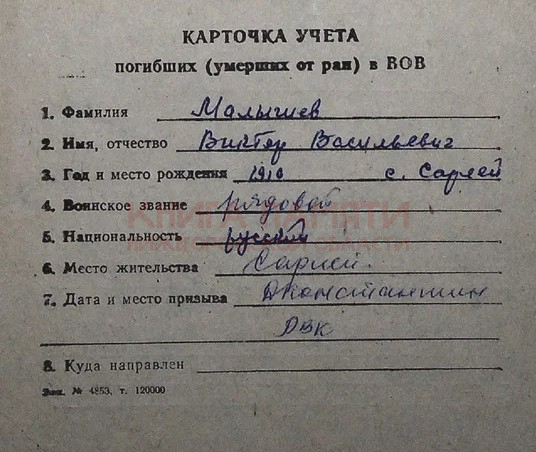 КАРТОЧКА УЧЕТА
погибших (умерших от ран) в ВОВ
1. Фамилия Малышев
2. Имя, отчество Виктор Васильевич
3. Год и место рождения 1910 с. Сарлей
4. Воинское звание рядовой
КНИГА ПАМЯТИ
5. Национальность русский
6. Место жительства Сарлей.
7. Дата и место призыва Дконстантин
РВК
8. Куда направлен
Зак. № 4853, т. 120000